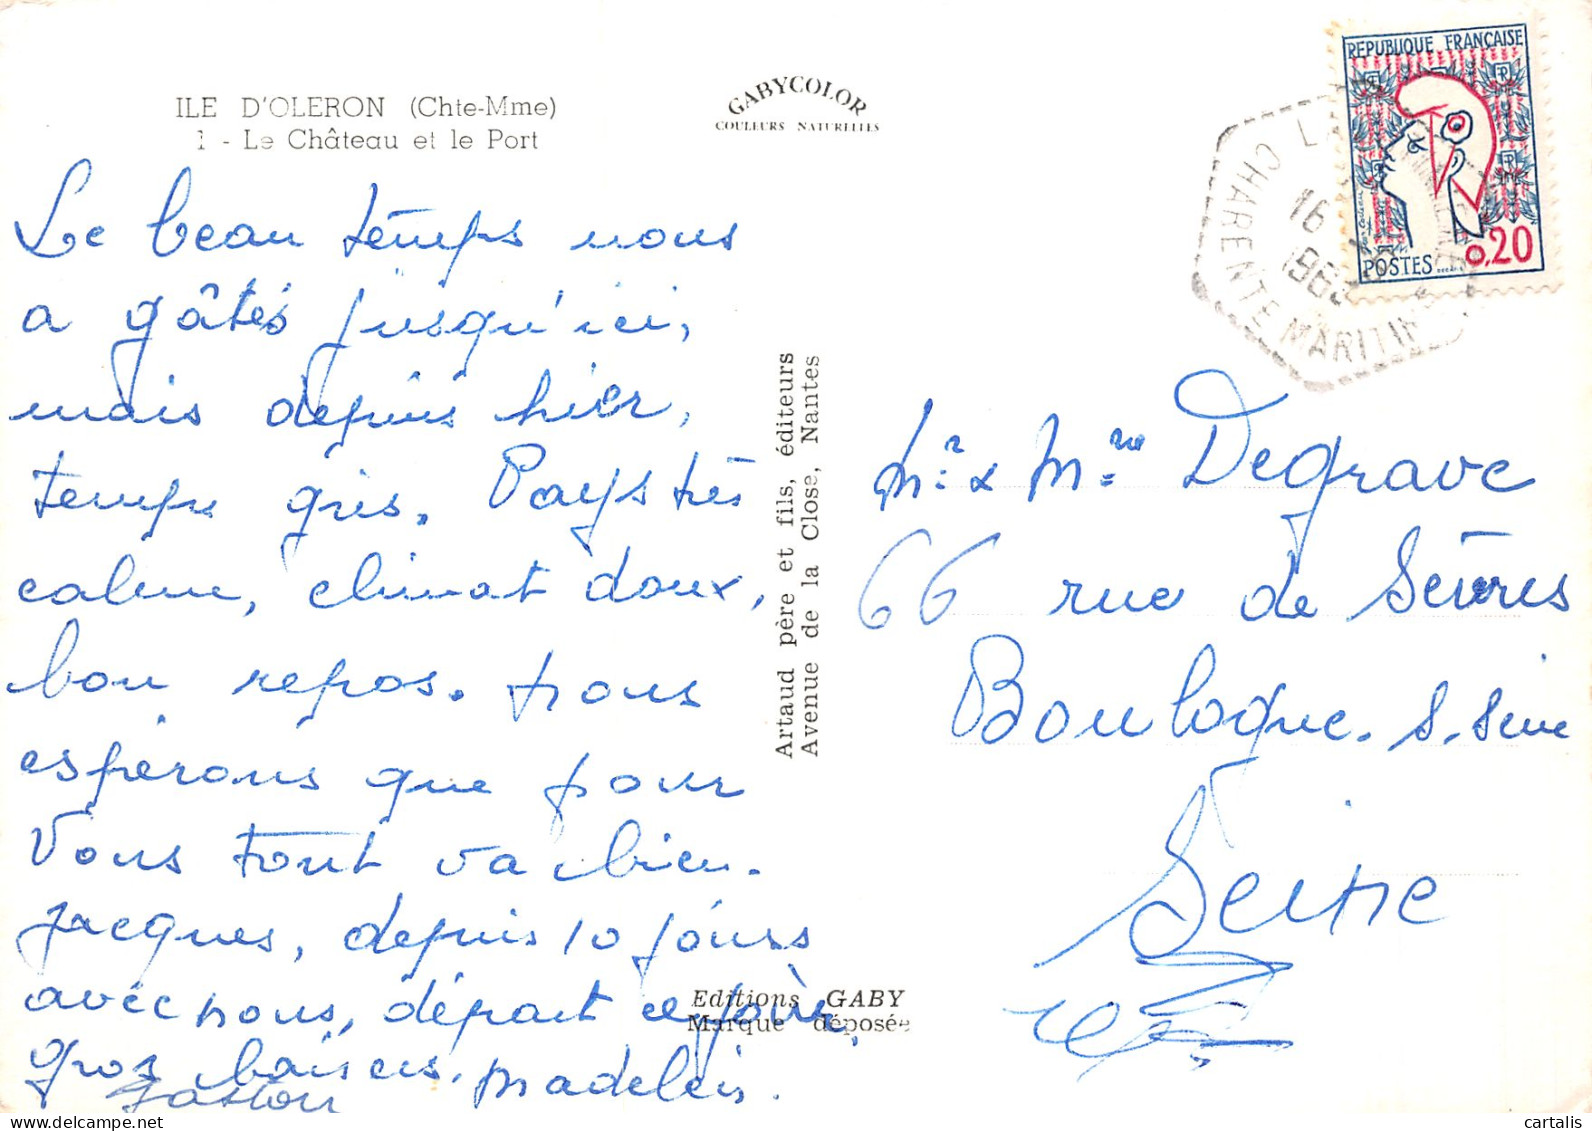 ILE D'OLERON (Chte-Mme)
1 - Le Château et le Port
GABYCOLOR
COULEURS NATURELLES
Le beau temps nous
a gâtés jusqu'ici,
mais depuis hier,
temps gris. Pays très
calme, climat doux,
bon repos. Nous
espérons que pour
Vous tout va bien.
Jacques, depuis 10 jours
avec nous, départ ce soir,
gros baisers. Madelein.
Gaston
Artaud père et fils, éditeurs
Avenue de la Close, Nantes
Editions GABY
Marque déposée
REPUBLIQUE FRANÇAISE
POSTES
0,20
CHARENTE MARITIME
16
Mr & Mme Degrave
66 rue de Sèvres
Boulogne. S. Seine
Seine
cartalis